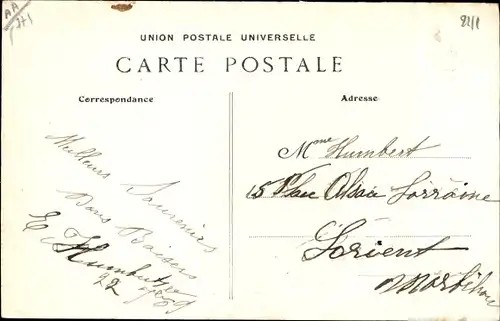 AA
UNION POSTALE UNIVERSELLE
CARTE POSTALE
Correspondance
Adresse
Meilleurs Souvenirs
Bons Baisers
E Humbert
22
Mme Humbert
15 Place Alsace Lorraine
Lorient
Morbihan